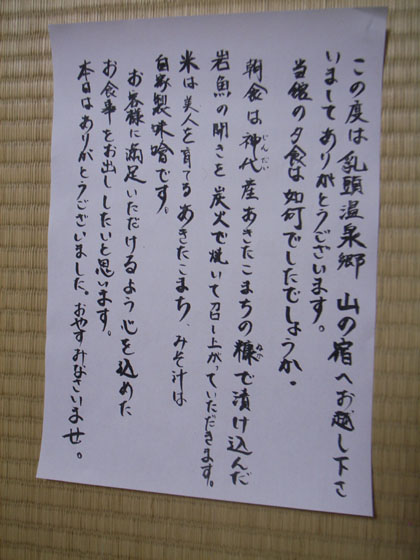 この度は乳頭温泉郷 山の宿へお越し下さ
いましてありがとうございます。
当館の夕食は如何でしたでしょうか。
朝食は神代産あきたこまちの糠で漬け込んだ
じんだい
ぬか
岩魚の開きを炭火で焼いて召し上がっていただきます。
米は美人を育てるあきたこまち、みそ汁は
自家製味噌です。
お客様に満足いただけるよう心を込めた
お食事をお出ししたいと思います。
本日はありがとうございました。おやすみなさいませ。